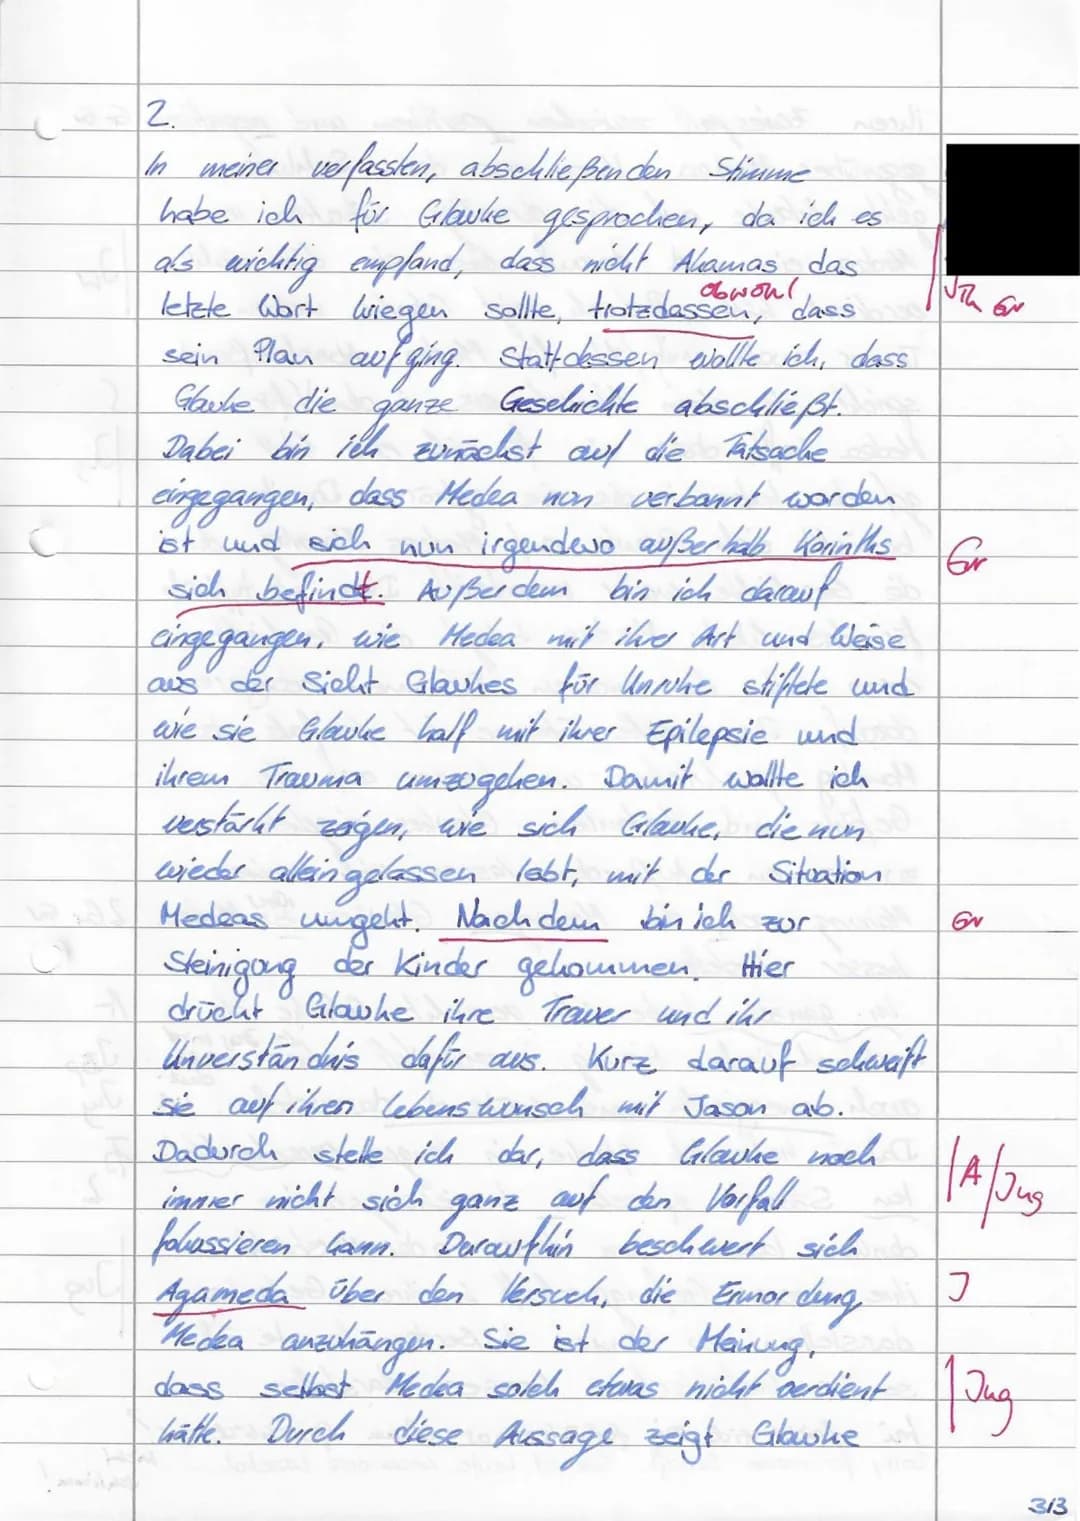 2.
In meiner verfassten, abschließenden Stimme
habe ich für Glauke gesprochen, da ich es
als wichtig empfand, dass nicht Akamas das
obwohl
letzte Wort kriegen sollte, trotzdessen, dass
Gr
sein Plan aufging. Stattdessen wollte ich, dass
Glauke die ganze Geschichte abschließt.
Dabei bin ich zunächst auf die Tatsache
eingegangen, dass Medea nun verbannt worden
ist und sich nun irgendwo außerhalb Korinths
Gr
sich befindt. Außerdem bin ich darauf
eingegangen, wie Medea mit ihrer Art und Weise
aus der Sicht Glaukes für Unruhe stiftete und
wie sie Glauke half mit ihrer Epilepsie und
ihrem Trauma umzugehen. Damit wollte ich
verstärkt zeigen, wie sich Glauke, die nun
wieder alleingelassen lebt, mit der Situation
Medeas umgeht. Nachdem bin ich zur
Gr
Steinigung der Kinder gekommen. Hier
drückt Glauke ihre Trauer und ihr
Unverständnis dafür aus. Kurz darauf schweift
sie auf ihren Lebenswunsch mit Jason ab.
Dadurch stelle ich dar, dass Glauke noch
A/Jug
immer nicht sich ganz auf den Vorfall
fokussieren kann. Daraufhin beschwert sich
Agameda über den Versuch, die Ermordung
J
Medea anzuhängen. Sie ist der Meinung,
dass selbst Medea solch etwas nicht verdient
Jug
hätte. Durch diese Aussage zeigt Glauke
3/3